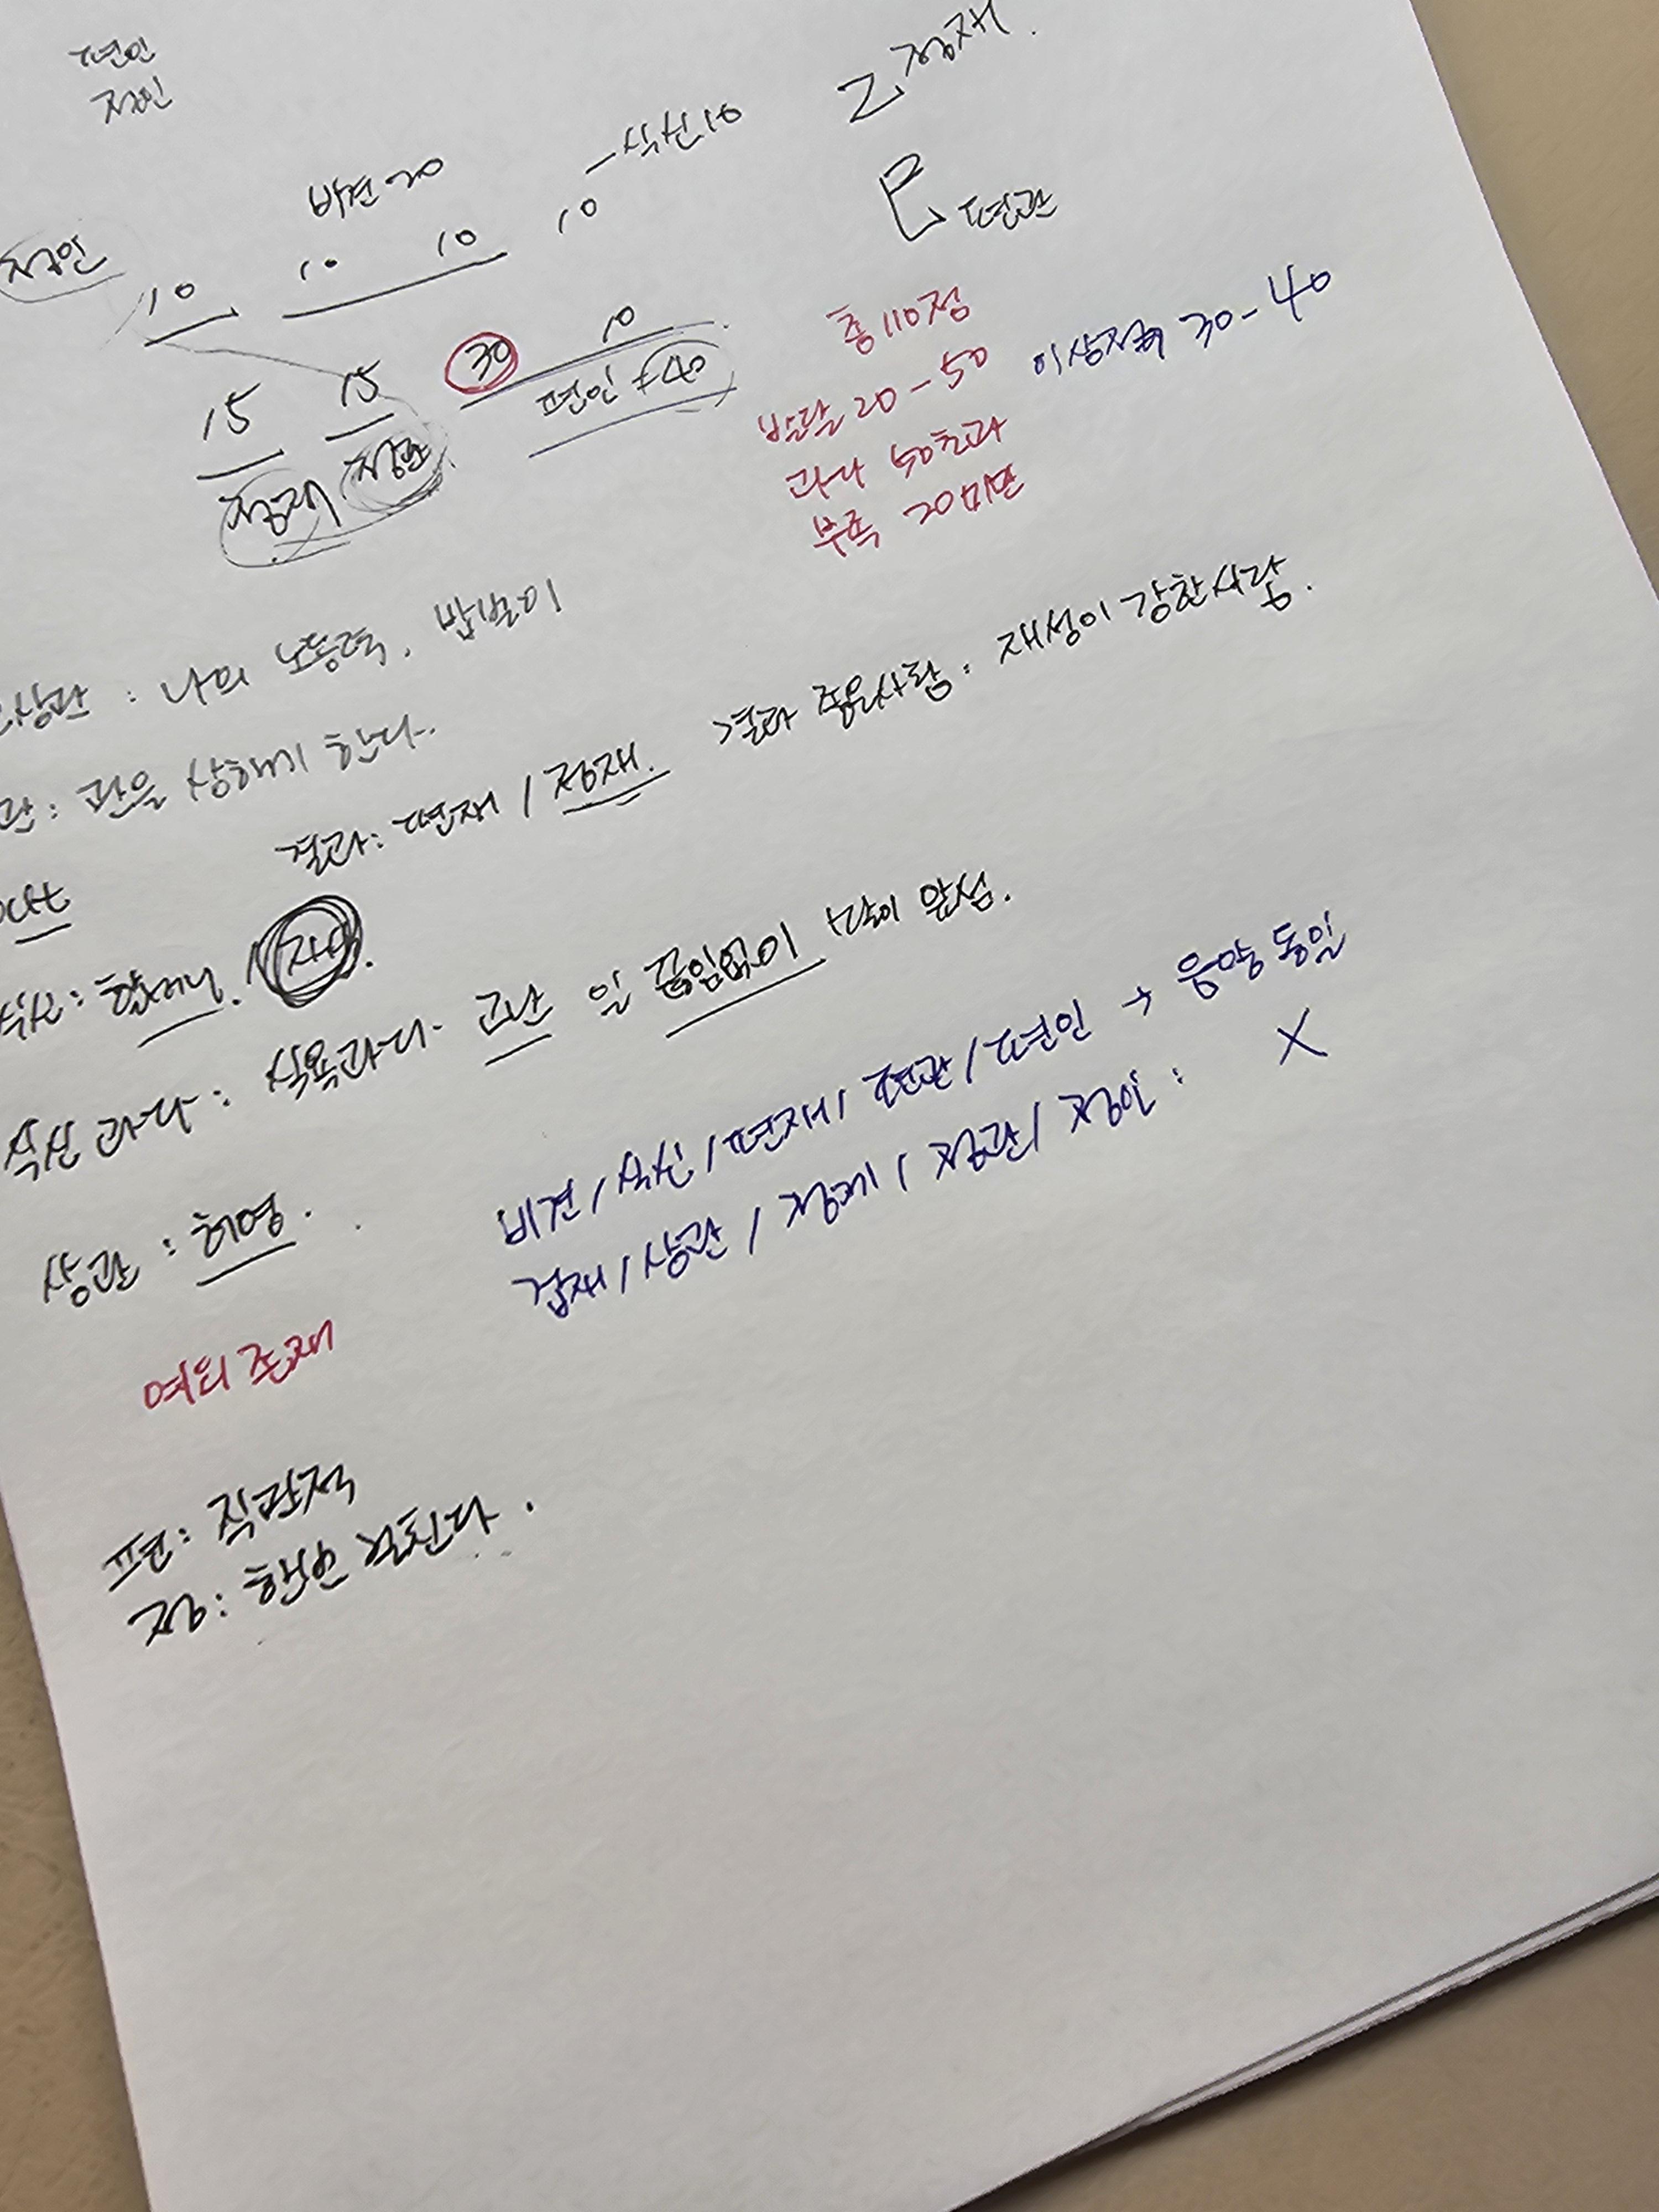 편인
정인
정재.
乙
비견 20
식신 10
巳 편관
정인
10 10 10 10
15 15 30 10
편인 40
정재
총 110점
발달 20-50 이상적 30-40
과다 50초과
부족 20미만
상관 : 나의 노동력, 밥벌이
관 : 관을 상하게 한다.
결과 : 편재 / 정재. 결과 좋은사람 : 재성이 강한사람.
식신 과다 : 식욕과다. 고난 일 끊임없이 앞섬.
비견 / 식신 / 편재 / 편관 / 편인 → 음양 동일
겁재 / 상관 / 정재 / 정관 / 정인 : X
상관 : 허영.
여의 존재
편 : 직관적
정 :